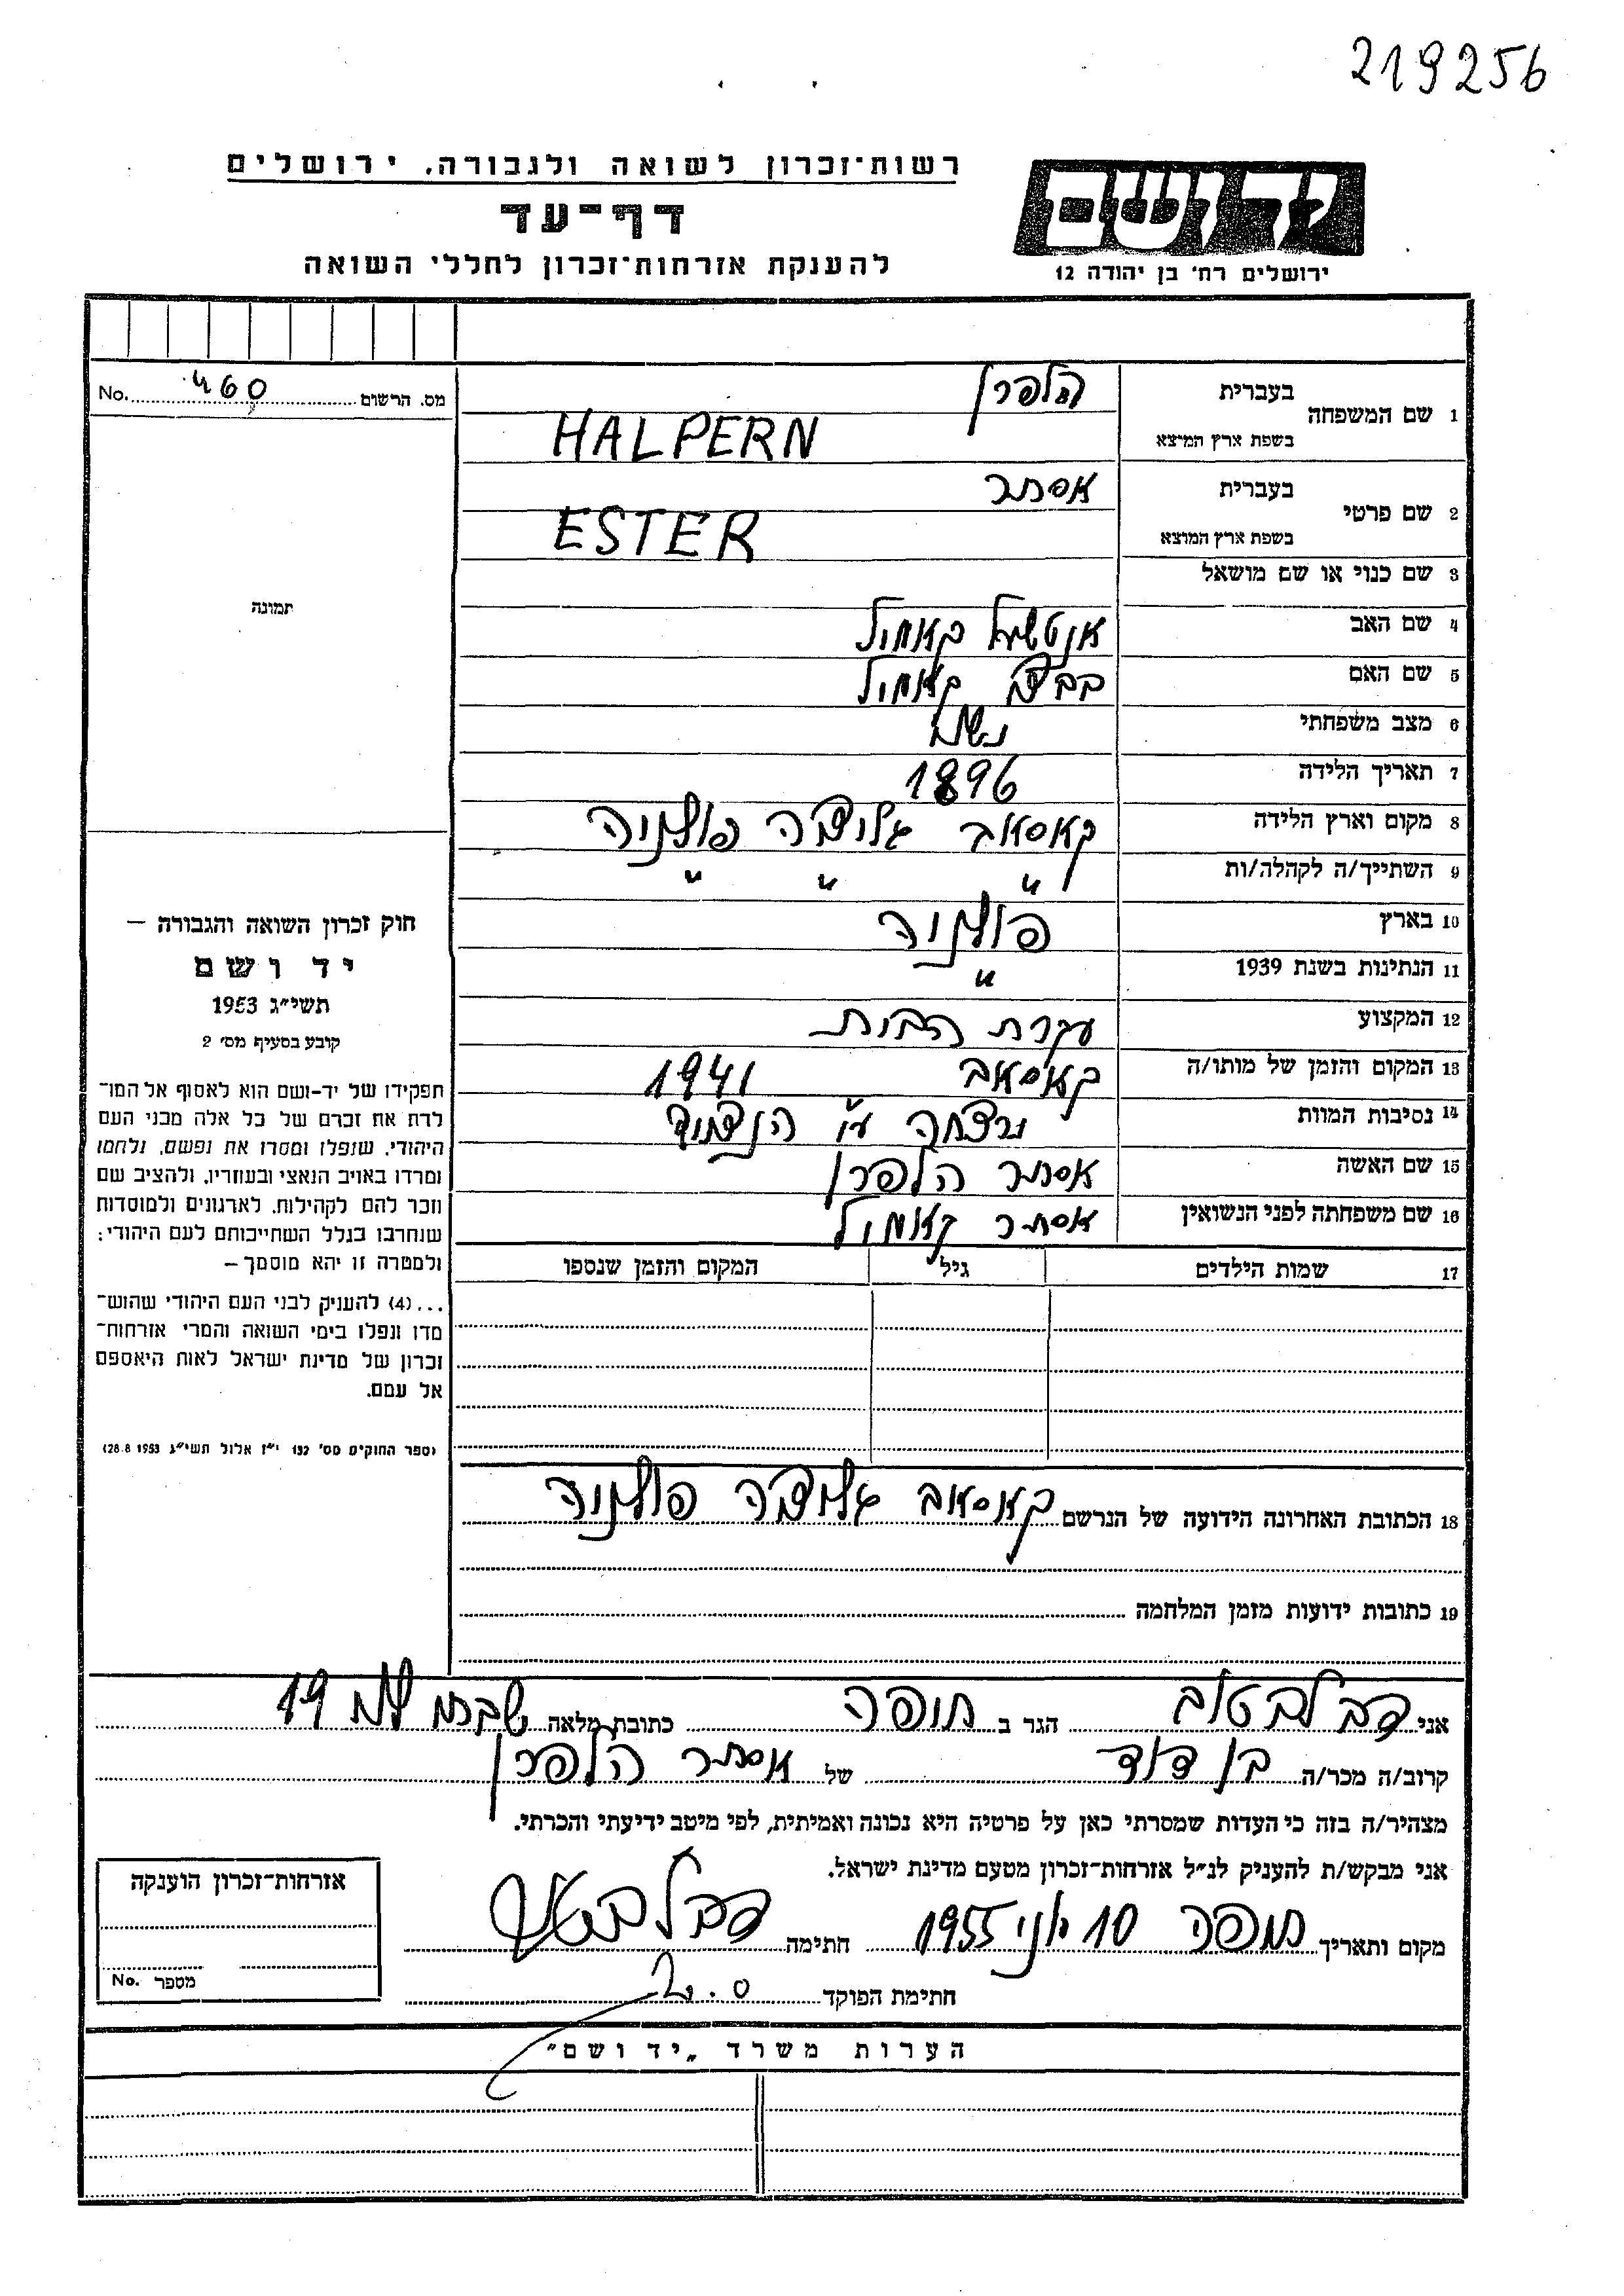 219256
רשות־זכרון לשואה ולגבורה, ירושלים
דף־עד
להענקת אזרחות־זכרון לחללי השואה
יד ושם
ירושלים רח׳ בן יהודה 12
מס. הרשום 460 No.
תמונה
חוק זכרון השואה והגבורה –
יד ושם
תשי״ג 1953
קובע בסעיף מס׳ 2
תפקידו של יד-ושם הוא לאסוף אל המו־
לדת את זכרם של כל אלה מבני העם
היהודי, שנפלו ומסרו את נפשם, נלחמו
ומרדו באויב הנאצי ובעוזריו, ולהציב שם
וזכר להם לקהילות, לארגונים ולמוסדות
שנחרבו בגלל השתייכותם לעם היהודי;
ולמטרה זו יהא מוסמך –
...(4) להעניק לבני העם היהודי שהוש־
מדו ונפלו בימי השואה והמרי אזרחות־
זכרון של מדינת ישראל לאות היאספם
אל עמם.
(ספר החוקים מס׳ 132 י״ז אלול תשי״ג 28.8.1953)
1 שם המשפחה בעברית הלפרן
בשפת ארץ המוצא HALPERN
2 שם פרטי בעברית אסתר
בשפת ארץ המוצא ESTER
3 שם כנוי או שם מושאל
4 שם האב
5 שם האם
6 מצב משפחתי
7 תאריך הלידה 1896
8 מקום וארץ הלידה קאסאב גליציה פולניה
9 השתייך/ה לקהלה/ות " " "
10 בארץ פולניה
11 הנתינות בשנת 1939 "
12 המקצוע עקרת הבית
13 המקום והזמן של מותו/ה קאסאב 1941
14 נסיבות המוות נרצחה ע״י הנאצים
15 שם האשה אסתר הלפרן
16 שם משפחתה לפני הנשואין אסתר
17 שמות הילדים גיל המקום והזמן שנספו
18 הכתובת האחרונה הידועה של הנרשם קאסאב גליציה פולניה
19 כתובות ידועות מזמן המלחמה
אני הגר ב חיפה כתובת מלאה 19
קרוב/ה מכר/ה בן דוד של אסתר הלפרן
מצהיר/ה בזה כי העדות שמסרתי כאן על פרטיה היא נכונה ואמיתית, לפי מיטב ידיעתי והכרתי.
אני מבקש/ת להעניק לנ״ל אזרחות-זכרון מטעם מדינת ישראל.
מקום ותאריך חיפה 10 יוני 1955 חתימה
חתימת הפוקד
אזרחות-זכרון הוענקה
מספר No.
הערות משרד „יד ושם״